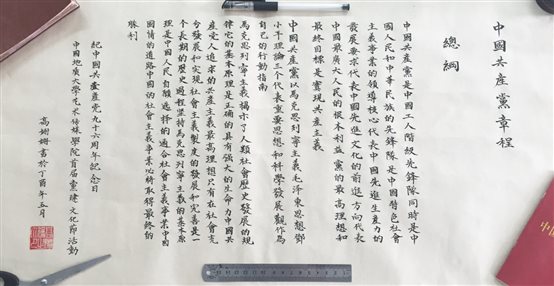 中國共產黨章程
總綱
中國共產黨是中國工人階級先鋒隊同時是中
國人民和中華民族的先鋒隊是中國特色社會
主義事業的領導核心代表中國先進生產力的
發展要求代表中國先進文化的前進方向代表
中國最廣大人民的根本利益黨的最高理想和
最終目標是實現共產主義
中國共產黨以馬克思列寧主義毛澤東思想鄧
小平理論三個代表重要思想和科學發展觀作為
自己的行動指南
馬克思列寧主義揭示了人類社會歷史發展的規
律它的基本原理是正確的具有強大的生命力中國共
產黨人追求的共產主義最高理想只有在社會充
分發展和實現社會主義製度的發展和完善是一
個長期的歷史過程堅持馬克思列寧主義的基本原
理是中國人民自願選擇的適合社會主義事業中國
國情的道路中國的社會主義事業必將取得最終的
勝利
紀中國共產黨九十六周年紀念日
中國地質大學藝術傳媒學院首屆黨建文化節活動
書於丁酉年五月